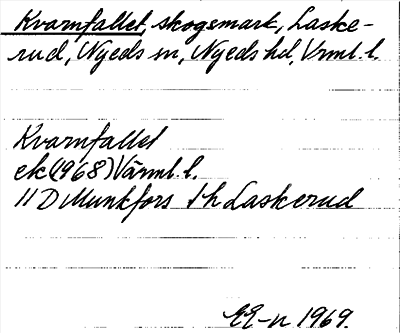 Kvarnfallet, skogsmark, Laske-
rud, Nyeds sn, Nyeds hd, Vrml. l.
Kvarnfallet
ek (1968) Värml. l.
11 D Munkfors s h Laskerud
EE-n 1969.